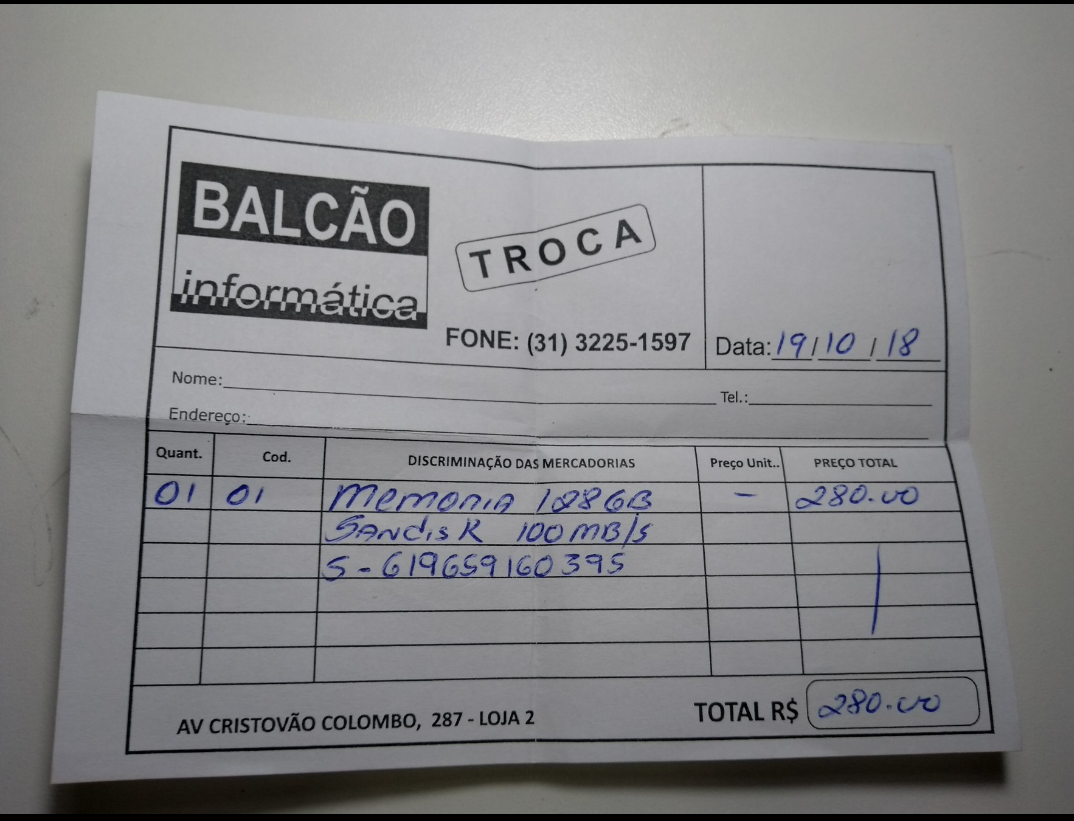 BALCÃO
informática
TROCA
FONE: (31) 3225-1597
Data: 19/10/18
Nome:
Tel.:
Endereço:
Quant. Cod. DISCRIMINAÇÃO DAS MERCADORIAS Preço Unit.. PREÇO TOTAL
01 01 Memoria 128GB - 280.00
SANDisK 100MB/s
S-619659160395
AV CRISTOVÃO COLOMBO, 287 - LOJA 2
TOTAL R$ 280.00